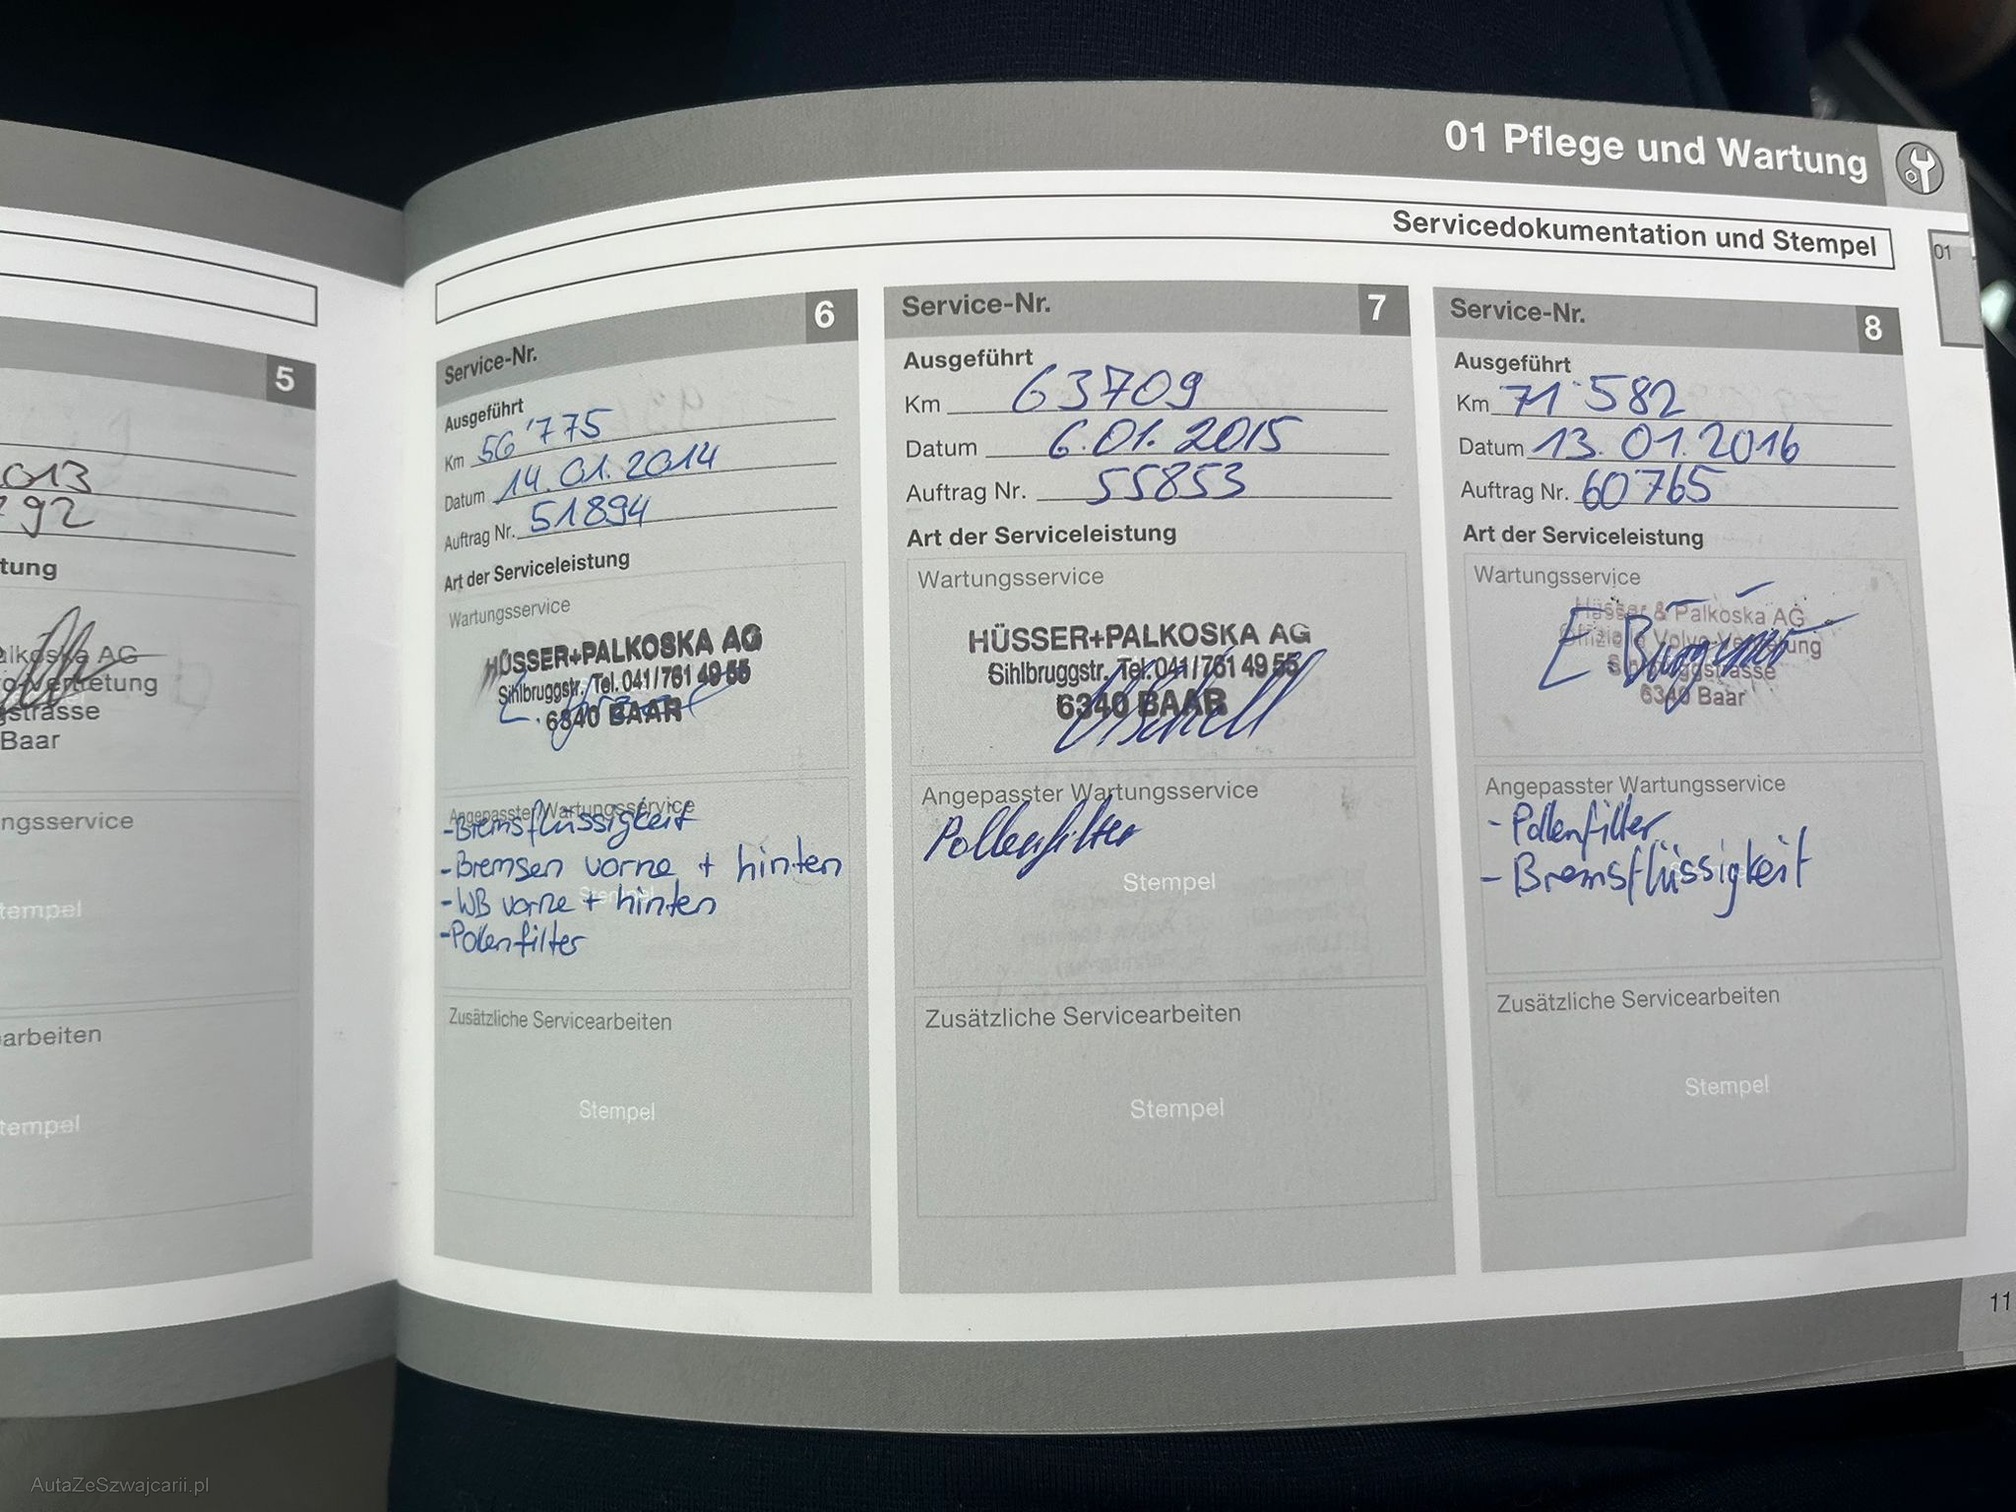 01 Pflege und Wartung
Servicedokumentation und Stempel
01
5
013
92
tung
alkoska AG
Vertretung
strasse
Baar
ngsservice
tempel
arbeiten
tempel
Service-Nr. 6
Ausgeführt
Km 56'775
Datum 14.01.2014
Auftrag Nr. 51894
Art der Serviceleistung
Wartungsservice
HÜSSER+PALKOSKA AG
Sihlbruggstr. Tel. 041/761 49 55
6340 BAAR
Angepasster Wartungsservice
-Bremsflüssigkeit
-Bremsen vorne + hinten
-WB vorne + hinten
-Pollenfilter
Stempel
Zusätzliche Servicearbeiten
Stempel
Service-Nr. 7
Ausgeführt
Km 63709
Datum 6.01.2015
Auftrag Nr. 55853
Art der Serviceleistung
Wartungsservice
HÜSSER+PALKOSKA AG
Sihlbruggstr. Tel. 041/761 49 55
6340 BAAR
Angepasster Wartungsservice
Pollenfilter
Stempel
Zusätzliche Servicearbeiten
Stempel
Service-Nr. 8
Ausgeführt
Km 71'582
Datum 13.01.2016
Auftrag Nr. 60765
Art der Serviceleistung
Wartungsservice
Hüsser & Palkoska AG
Offizielle Volvo-Vertretung
Sihlbruggstrasse
6340 Baar
Angepasster Wartungsservice
- Pollenfilter
- Bremsflüssigkeit
Zusätzliche Servicearbeiten
Stempel
11
AutaZeSzwajcarii.pl